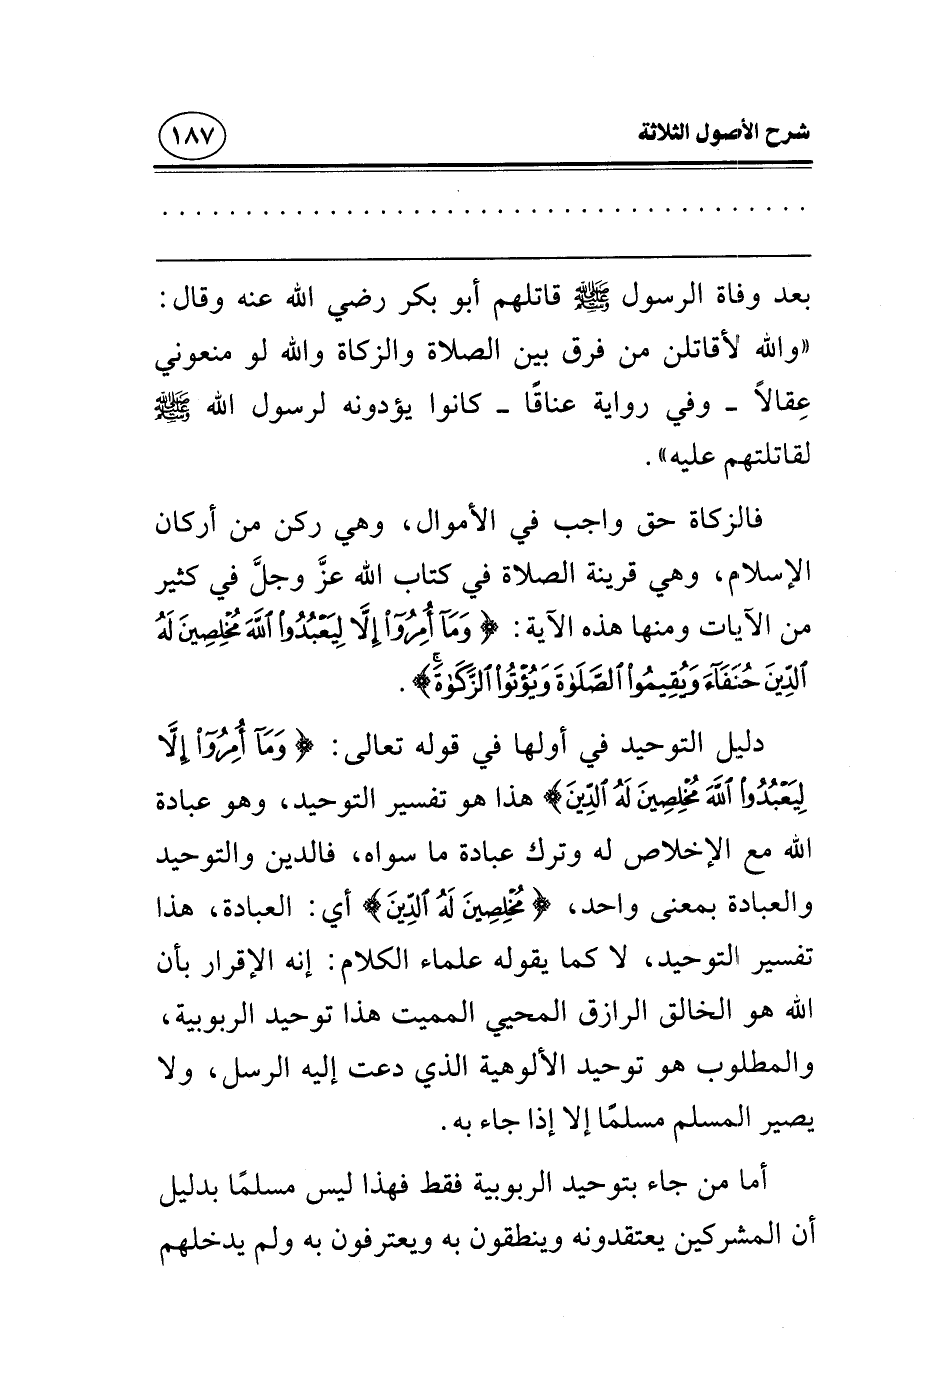 شرح الأصول الثلاثة
١٨٧
. . . . . . . . . . . . . . . . . . . . . . . . . . . . . . . . . . . . . .
بعد وفاة الرسول ﷺ قاتلهم أبو بكر رضي الله عنه وقال:
«والله لأقاتلن من فرق بين الصلاة والزكاة والله لو منعوني
عِقالاً ـ وفي رواية عناقًا ـ كانوا يؤدونه لرسول الله ﷺ
لقاتلتهم عليه».
فالزكاة حق واجب في الأموال، وهي ركن من أركان
الإسلام، وهي قرينة الصلاة في كتاب الله عزَّ وجلَّ في كثير
من الآيات ومنها هذه الآية: ﴿ وَمَآ أُمِرُوٓا۟ إِلَّا لِيَعْبُدُوا۟ ٱللَّهَ مُخْلِصِينَ لَهُ
ٱلدِّينَ حُنَفَآءَ وَيُقِيمُوا۟ ٱلصَّلَوٰةَ وَيُؤْتُوا۟ ٱلزَّكَوٰةَۚ﴾ .
دليل التوحيد في أولها في قوله تعالى: ﴿ وَمَآ أُمِرُوٓا۟ إِلَّا
لِيَعْبُدُوا۟ ٱللَّهَ مُخْلِصِينَ لَهُ ٱلدِّينَ﴾ هذا هو تفسير التوحيد، وهو عبادة
الله مع الإخلاص له وترك عبادة ما سواه، فالدين والتوحيد
والعبادة بمعنى واحد، ﴿ مُخْلِصِينَ لَهُ ٱلدِّينَ﴾ أي: العبادة، هذا
تفسير التوحيد، لا كما يقوله علماء الكلام: إنه الإقرار بأن
الله هو الخالق الرازق المحيي المميت هذا توحيد الربوبية،
والمطلوب هو توحيد الألوهية الذي دعت إليه الرسل، ولا
يصير المسلم مسلمًا إلا إذا جاء به.
أما من جاء بتوحيد الربوبية فقط فهذا ليس مسلمًا بدليل
أن المشركين يعتقدونه وينطقون به ويعترفون به ولم يدخلهم